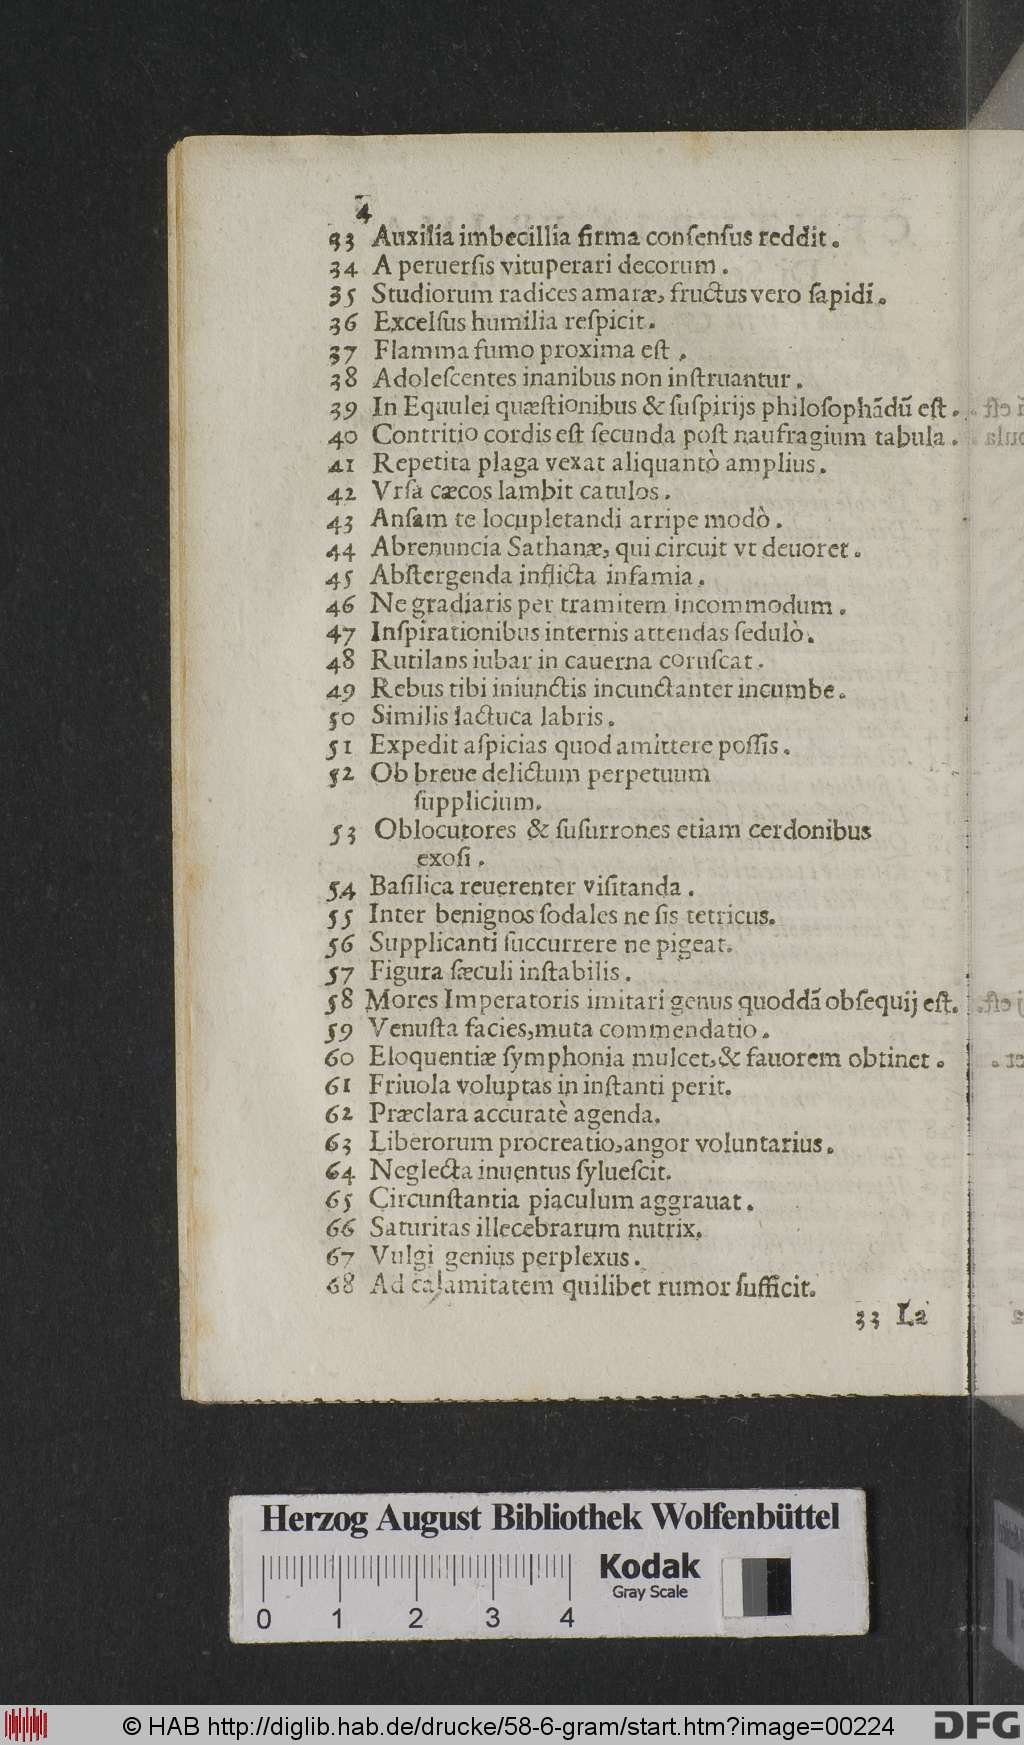 4
33 Auxilia imbecillia firma conſenſus reddit.
34 A peruerſis vituperari decorum.
35 Studiorum radices amaræ, fructus vero ſapidi.
36 Excelſus humilia reſpicit.
37 Flamma fumo proxima eſt.
38 Adoleſcentes inanibus non inſtruantur.
39 In Equulei quæſtionibus & ſuſpirijs philoſophādū eſt.
40 Contritio cordis eſt ſecunda poſt naufragium tabula.
41 Repetita plaga vexat aliquantò amplius.
42 Vrſa cæcos lambit catulos.
43 Anſam te locupletandi arripe modò.
44 Abrenuncia Sathanæ, qui circuit vt deuoret.
45 Abſtergenda inflicta infamia.
46 Ne gradiaris per tramitem incommodum.
47 Inſpirationibus internis attendas ſedulò.
48 Rutilans iubar in cauerna coruſcat.
49 Rebus tibi iniunctis incunctanter incumbe.
50 Similis lactuca labris.
51 Expedit aſpicias quod amittere poſſis.
52 Ob breue delictum perpetuum
ſupplicium.
53 Oblocutores & ſuſurrones etiam cerdonibus
exoſi.
54 Baſilica reuerenter viſitanda.
55 Inter benignos ſodales ne ſis tetricus.
56 Supplicanti ſuccurrere ne pigeat.
57 Figura ſæculi inſtabilis.
58 Mores Imperatoris imitari genus quoddā obſequij eſt.
59 Venuſta facies, muta commendatio.
60 Eloquentiæ ſymphonia mulcet, & fauorem obtinet.
61 Friuola voluptas in inſtanti perit.
62 Præclara accuratè agenda.
63 Liberorum procreatio, angor voluntarius.
64 Neglecta inuentus ſylueſcit.
65 Circunſtantia piaculum aggrauat.
66 Saturitas illecebrarum nutrix.
67 Vulgi genius perplexus.
68 Ad calamitatem quilibet rumor ſufficit.
33 La
Herzog August Bibliothek Wolfenbüttel
Kodak
Gray Scale
0 1 2 3 4
© HAB http://diglib.hab.de/drucke/58-6-gram/start.htm?image=00224
DFG